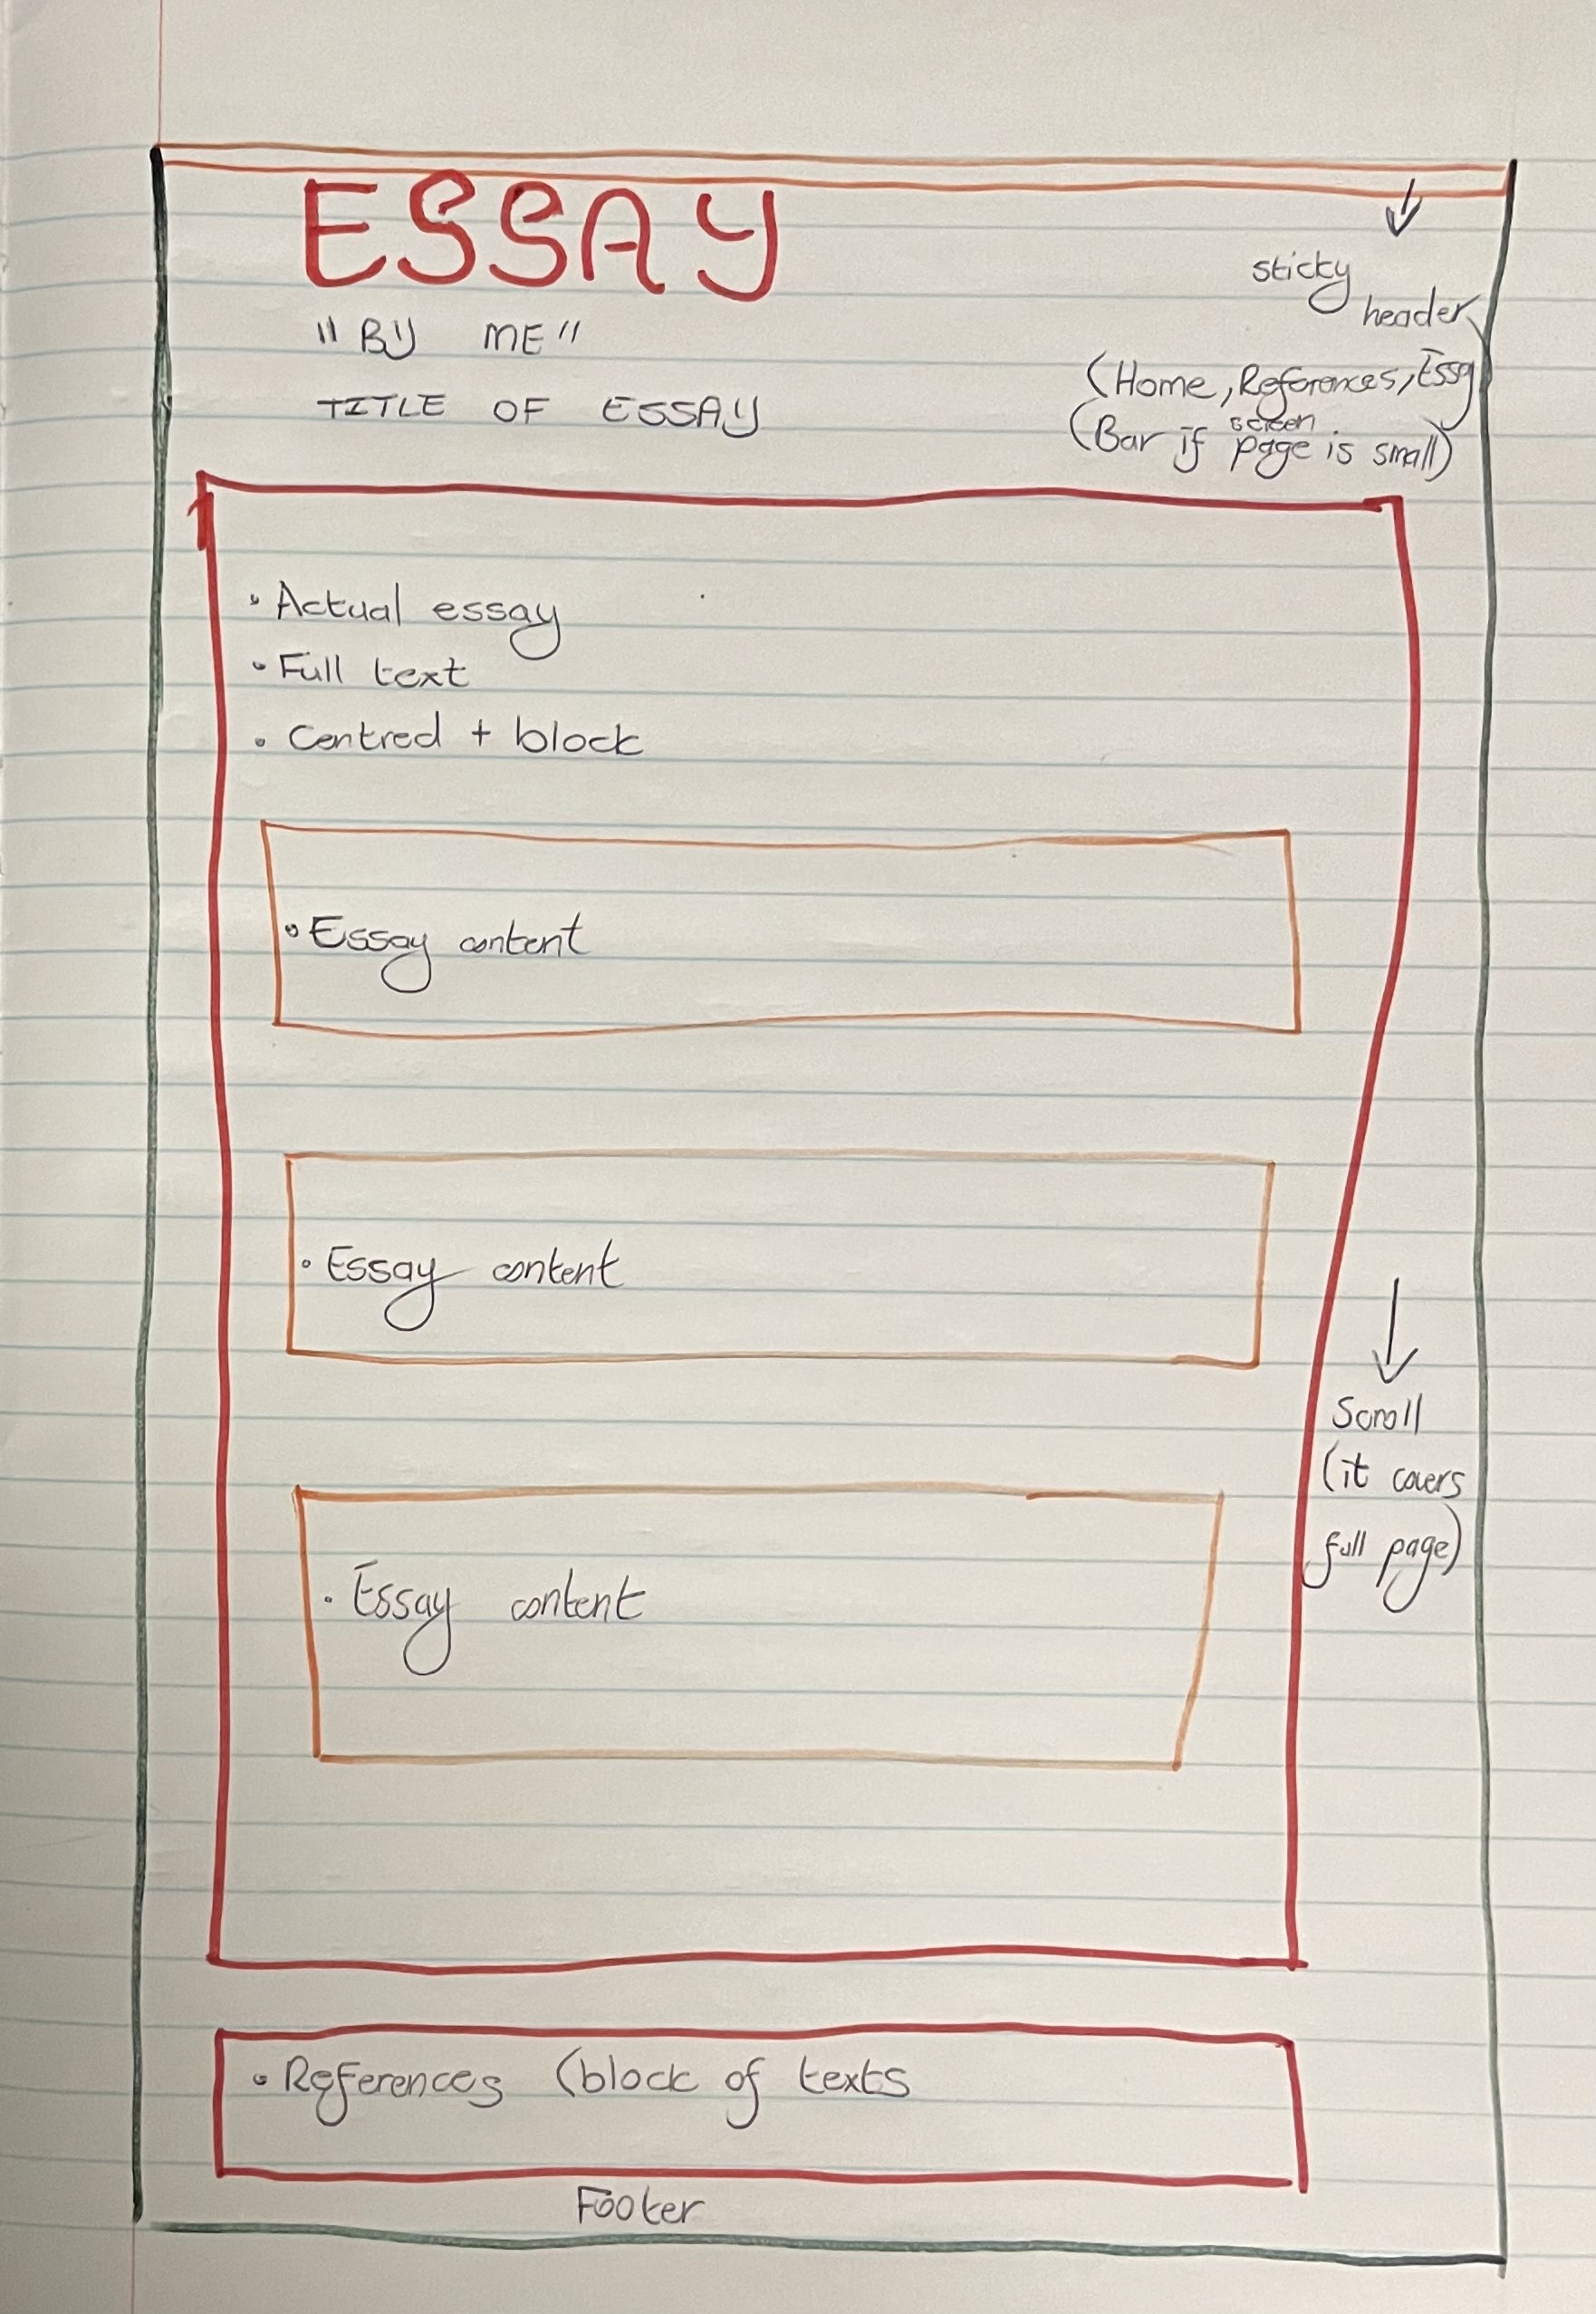 ESSAY
"BY ME"
TITLE OF ESSAY
sticky
header
(Home, References, Essay
(Bar if screen page is small)
• Actual essay
• Full text
• Centred + block
• Essay content
• Essay content
• Essay content
Scroll
(it covers
full page)
• References (block of texts
Footer